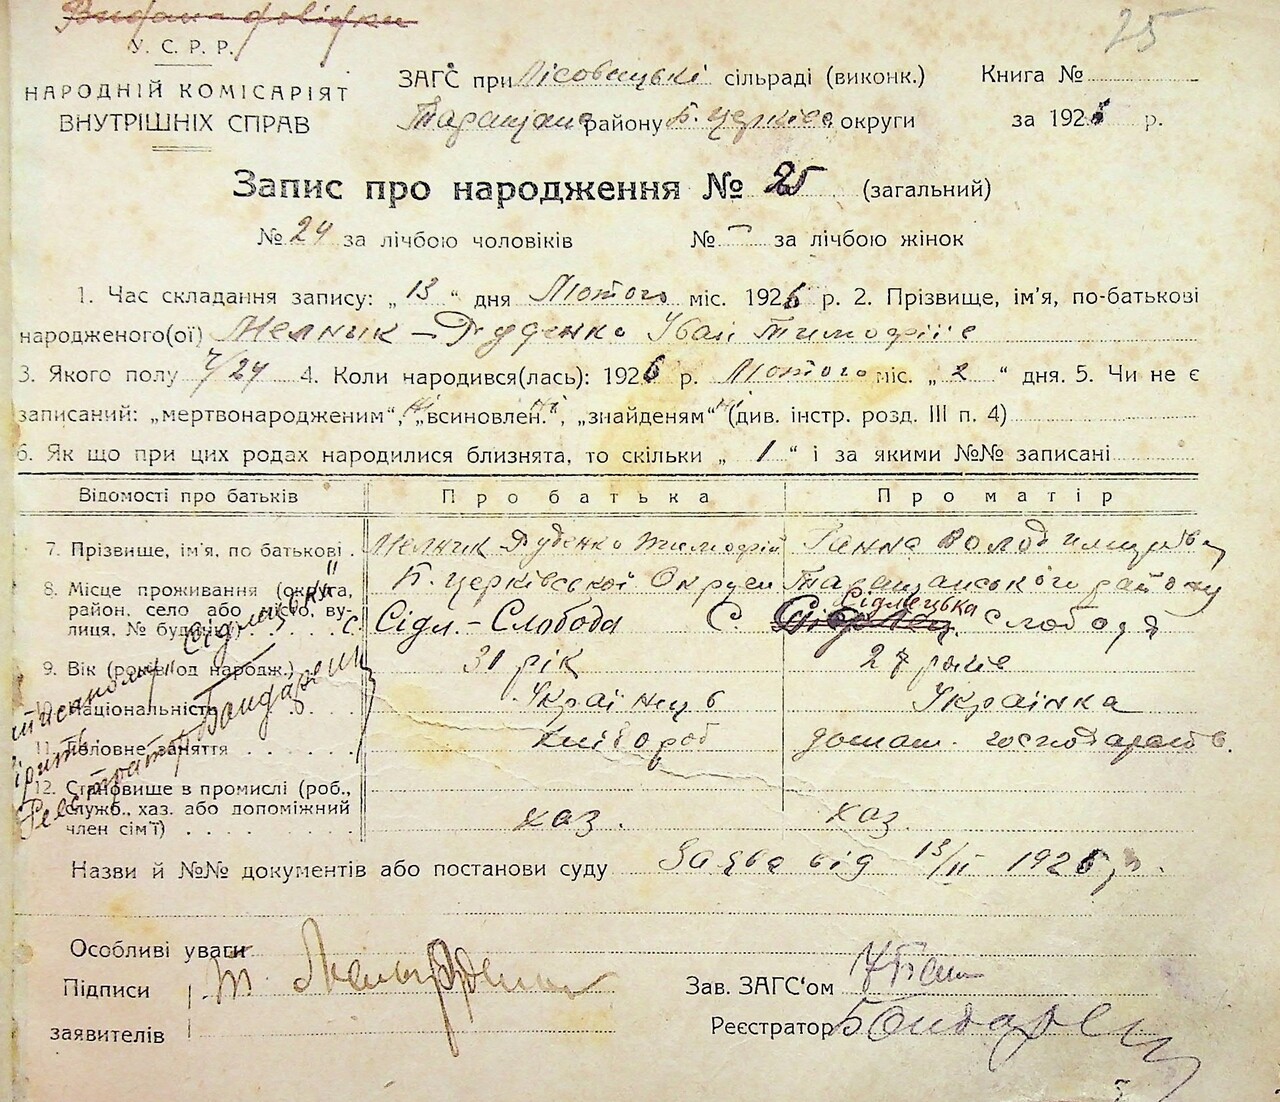 25
У. С. Р. Р.
НАРОДНІЙ КОМІСАРІЯТ
ВНУТРІШНІХ СПРАВ
ЗАГС при Лісовицькі сільраді (виконк.) Книга №
Таращанс району Б. Церківс округи за 1926 р.
Запис про народження № 25 (загальний)
№ 24 за лічбою чоловіків № — за лічбою жінок
1. Час складання запису: „ 13 “ дня Лютого міс. 1926 р. 2. Прізвище, ім'я, по-батькові
народженого(ої) Мелник – Дуденко Іван Тимофіїв
3. Якого полу Ч/24 4. Коли народився(лась): 1926 р. Лютого міс. „ 2 “ дня. 5. Чи не є
записаний: „мертвонародженим“, ні „всиновлен.“ ні, „знайденям“ ні (див. інстр. розд. III п. 4)
6. Як що при цих родах народилися близнята, то скільки „ 1 “ і за якими №№ записані
Відомості про батьків Про батька Про матір
7. Прізвище, ім'я, по батькові . Мелник Дуденко Тимофій Ганна Володимирівн
8. Місце проживання (округа, район, село або місто, вулиця, № будинку) . . . . . Б. Церківської Округи Таращанського району
с. Сідл. – Слобода С. Сідлецька Слобода
9. Вік (років од народж.) 31 рік 27 років
10. Національність . . . . Українець Українка
11. Головне заняття . . . . . хлібороб домаш. господарств.
12. Становище в промислі (роб.,
служб., хаз. або допоміжний
член сім'ї) . . . . . . . хаз. хаз.
"Сідлецьки"
Реєстратор Бондарен
Назви й №№ документів або постанови суду Заява від 13/II 1926 р.
Особливі уваги
Підписи Т.
заявителів
Зав. ЗАГС'ом
Реєстратор Бондарен